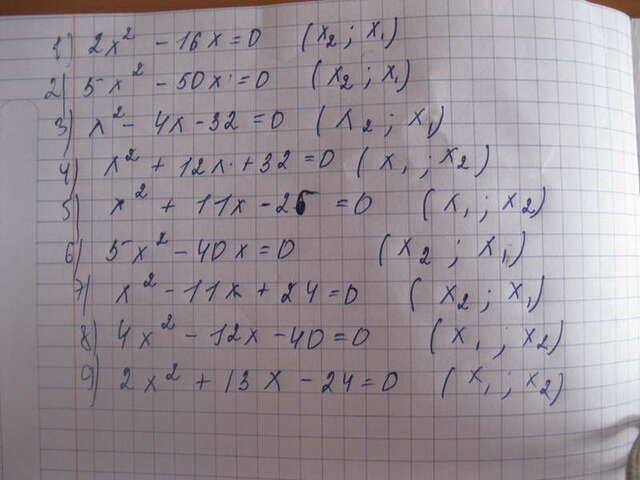 1) 2x² - 16x = 0 (x₂ ; x₁)
2) 5x² - 50x = 0 (x₂ ; x₁)
3) x² - 4x - 32 = 0 (x₂ ; x₁)
4) x² + 12x + 32 = 0 (x₁ ; x₂)
5) x² + 11x - 26 = 0 (x₁ ; x₂)
6) 5x² - 40x = 0 (x₂ ; x₁)
7) x² - 11x + 24 = 0 (x₂ ; x₁)
8) 4x² - 12x - 40 = 0 (x₁ ; x₂)
9) 2x² + 13x - 24 = 0 (x₁ ; x₂)